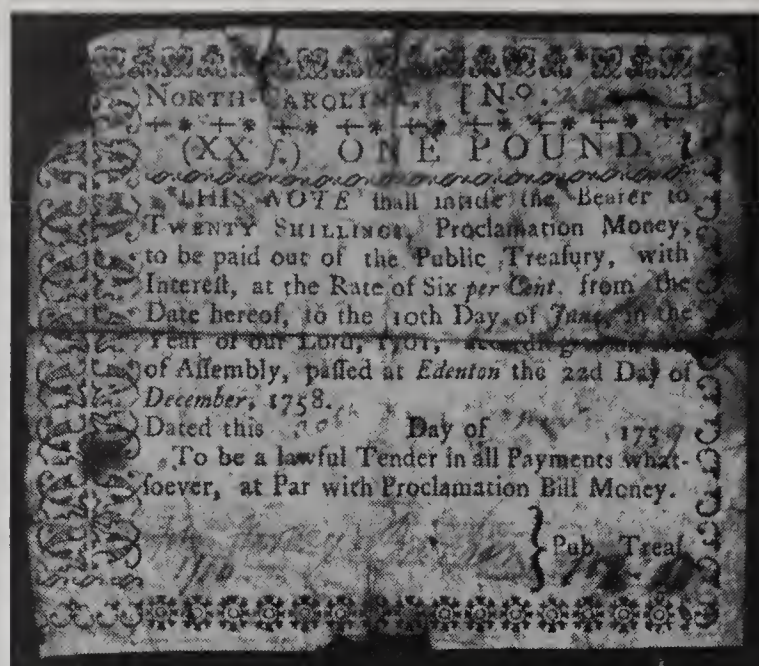 NORTH-CAROLINA. [No. ]
(XX ʃ.) ONE POUND.
THIS NOTE ſhall intitle the Bearer to
TWENTY SHILLINGS, Proclamation Money,
to be paid out of the Public Treaſury, with
Intereſt, at the Rate of Six per Cent. from the
Date hereof, to the 10th Day of June, in the
Year of our Lord, 1761,
of Aſſembly, paſſed at Edenton the 22d Day of
December, 1758.
Dated this Day of 1759
To be a lawful Tender in all Payments what-
ſoever, at Par with Proclamation Bill Money.
Pub. Treaſ.